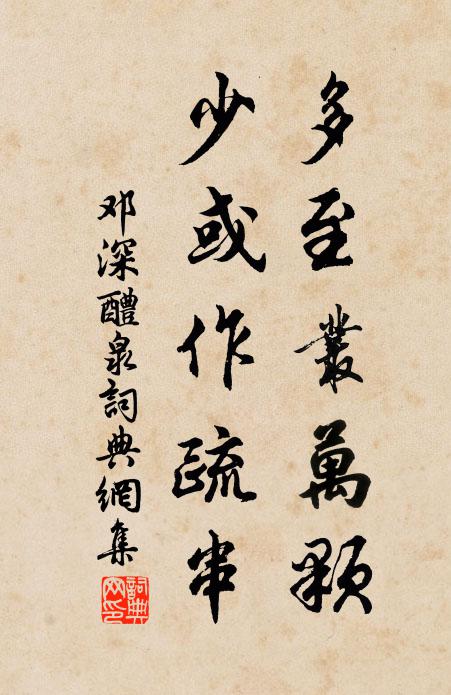 多至叢萬顆
少或作疏串
邓深醴泉詞典網集
詞典網印